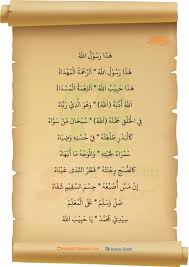 هَذَا رَسُوْلُ اللهْ
هَذَا رَسُوْلُ اللهْ * اَلرَّحْمَةُ الْمُهْدَاةْ
هَذَا حَبِيْبُ اللهْ * اَلنِّعْمَةُ الْمُسْدَاةْ
اَللهُ أَدَّبَهُ (اللهْ) * وَهُوَ الَّذِيْ رَبَّاهْ
فِي الْخَلْقِ جَمَّلَهُ (اللهْ) * سُبْحَانَ مَنْ سَوَّاهْ
كَالْبَدْرِ طَلْعَتُهُ * فِيْ حُسْنِهِ وَضِيَاهْ
سَمْرَاءُ جَبْهَتُهُ * وَالْوَجْهُ مَا أَبْهَاهْ
كَالصُّبْحِ وَجْنَتُهُ * قَطْرُ النَّدَى عَيْنَاهْ
إِنْ مَسَّ أُصْبُعُهُ * جِسْمَ السَّقِيْمِ شَفَاهْ
صَلِّ وَسَلِّمْ * عَلَى الْمُعَلِّمْ
سَيِّدِيْ مُحَمَّدْ * يَا حَبِيْبَ اللهْ